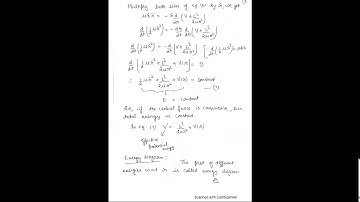 Multiply both sides of eq. (4) by ẋ, we get
μẋẍ = -ẋ d/dx (V + L²/2μx²)
d/dt (½μẋ²) = -dx/dt d/dx (V + L²/2μx²)
d/dt (½μẋ²) = -d/dt (V + L²/2μx²)
d/dt (½μẋ² + L²/2μx² + V(x)) = 0
∴ ½μẋ² + L²/2μx² + V(x) = constant
E = constant
if the central force is conservative, then
total energy is constant.
In eq. (7) V' = L²/2μx² + V(x)
effective
potential
energy
Energy diagram: The plot of different
energies court x is called energy diagram
Scanned with CamScanner